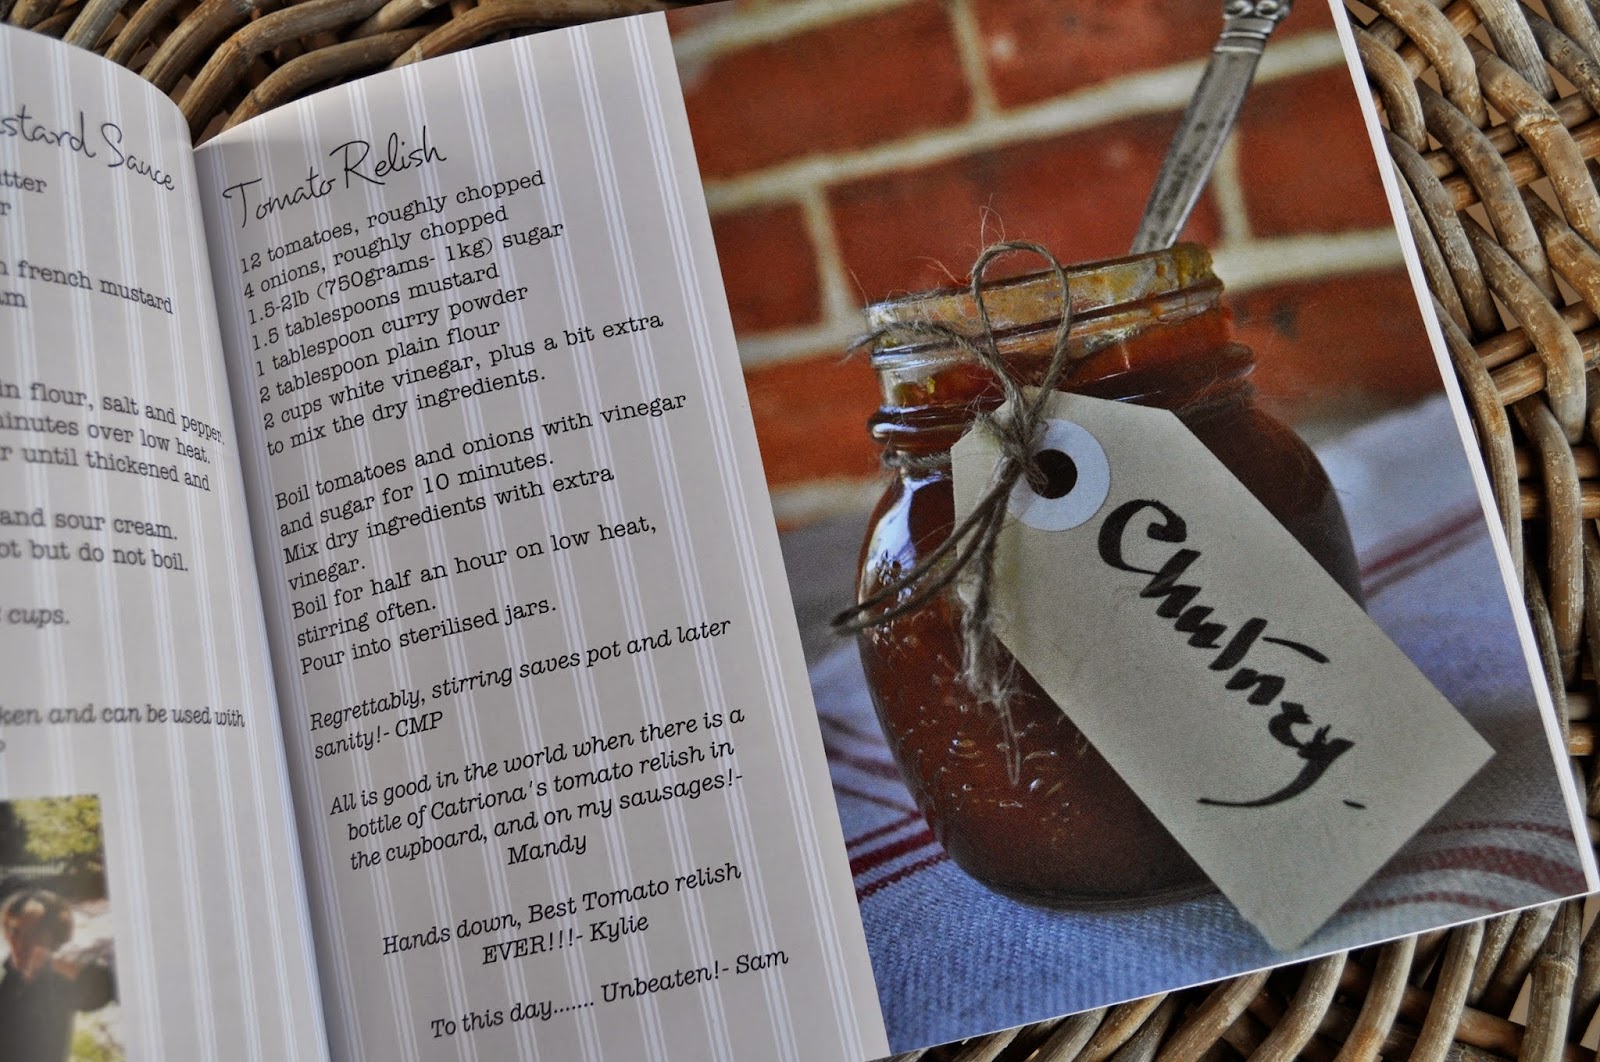 Sauce
french mustard
flour, salt and pepper.
minutes over low heat.
until thickened and
and sour cream.
but do not boil.
cups.
and can be used with
Tomato Relish
12 tomatoes, roughly chopped
4 onions, roughly chopped
1.5-2lb (750grams- 1kg) sugar
1.5 tablespoons mustard
1 tablespoon curry powder
2 tablespoon plain flour
2 cups white vinegar, plus a bit extra
to mix the dry ingredients.
Boil tomatoes and onions with vinegar
and sugar for 10 minutes.
Mix dry ingredients with extra
vinegar.
Boil for half an hour on low heat,
stirring often.
Pour into sterilised jars.
Regrettably, stirring saves pot and later
sanity!- CMP
All is good in the world when there is a
bottle of Catriona's tomato relish in
the cupboard, and on my sausages!-
Mandy
Hands down, Best Tomato relish
EVER!!!- Kylie
To this day....... Unbeaten!- Sam
Chutney.